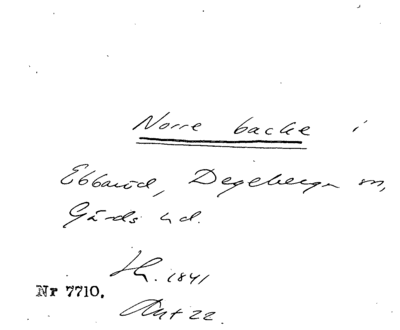 Norre backe i
Ebbaröd, Degeberga sn,
Gärds hd.
Sk. 1841
Nr 7710.
Akt 22